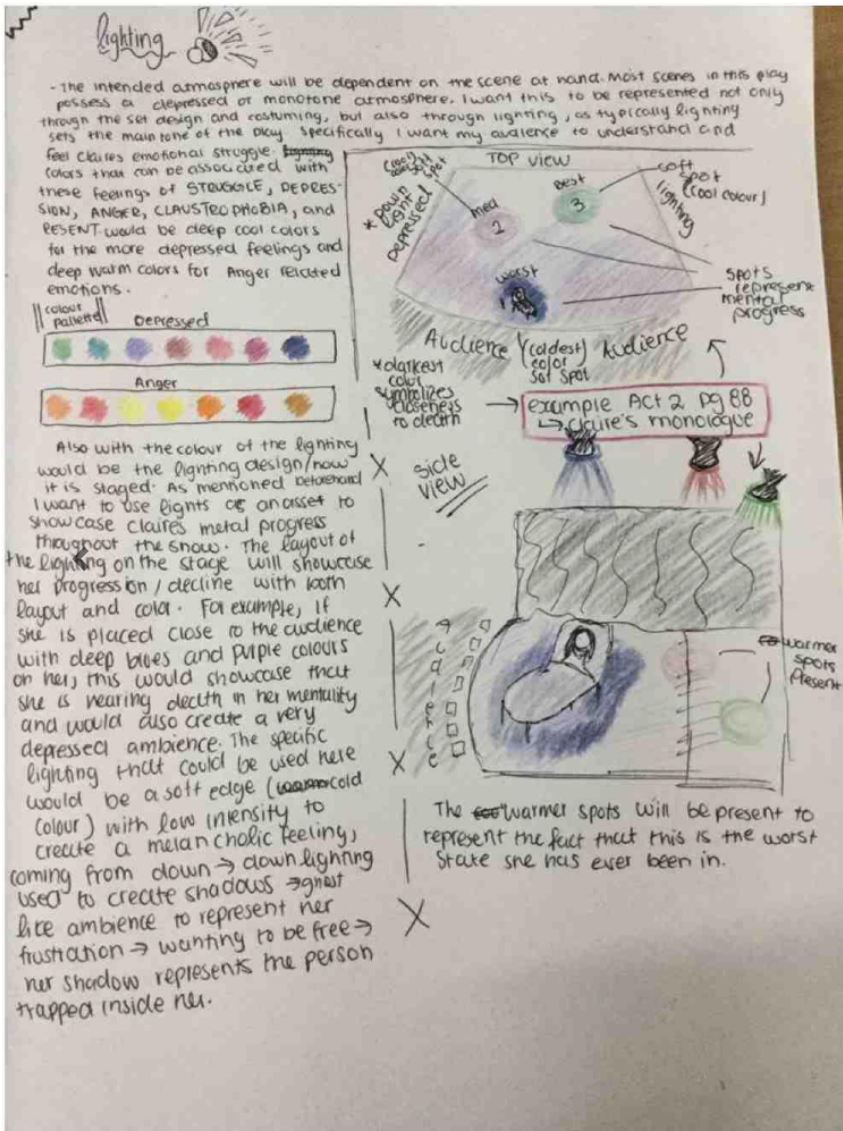 lighting
- The intended atmosphere will be dependent on the scene at hand. Most scenes in this play
possess a depressed or monotone atmosphere. I want this to be represented not only
through the set design and costuming, but also through lighting, as typically lighting
sets the main tone of the play. Specifically I want my audience to understand and
feel claires emotional struggle.
colors that can be associated with
these feelings of STRUGGLE, DEPRES-
SION, ANGER, CLAUSTROPHOBIA, and
RESENT would be deep cool colors
for the more depressed feelings and
deep warm colors for Anger related
emotions.
colour
pallette
Depressed
Anger
Also with the colour of the lighting
would be the lighting design/how
it is staged. As mentioned beforehand
I want to use lights as an asset to
showcase claires metal progress
throughout the show. The layout of
the lighting on the stage will showcase
her progression / decline with both
layout and color. For example, if
she is placed close to the audience
with deep blues and purple colours
on her, this would showcase that
she is nearing death in her mentality
and would also create a very
depressed ambience. The specific
lighting that could be used here
would be a soft edge (cold
colour) with low intensity to
create a melancholic feeling,
coming from down → down lighting
used to create shadows → ghost
like ambience to represent her
frustration → wanting to be free →
her shadow represents the person
trapped inside her.
TOP VIEW
soft
spot
* Down
light
Depressed
med
2
Best
3
soft
spot
(cool colour)
lighting
worst
1
spots
represent
mental
progress
Audience
(coldest)
color
Audience
* darkest
color
symbolizes
closeness
to death
→ example Act 2 pg 88
↳ claire's monologue
side
view
Audience
warmer
spots
Present
The warmer spots will be present to
represent the fact that this is the worst
state she has ever been in.